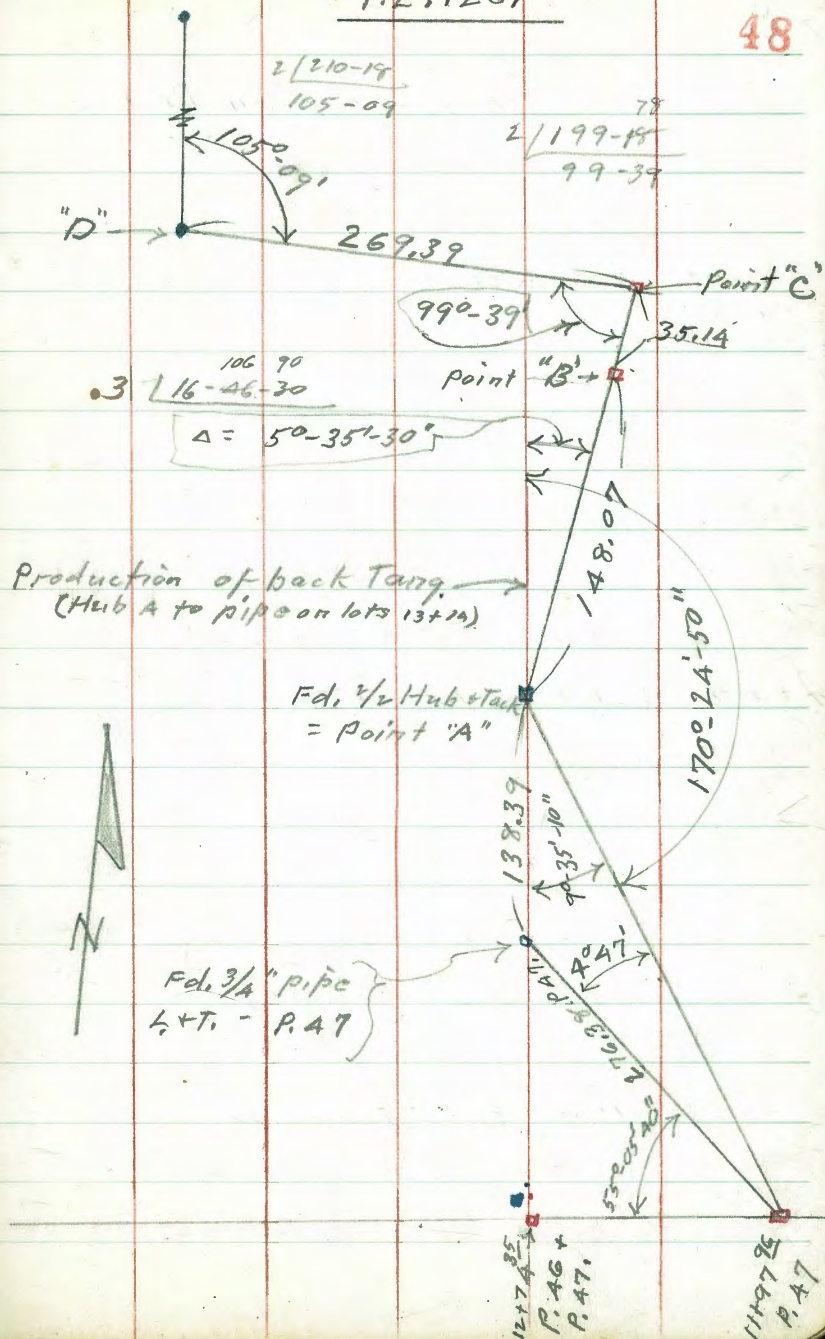 48
2 / 210-18
105-09
78
2 / 199-18
99-39
105°-09'
"D"
269.39
Point "C"
99°-39'
35.14
Point "B"
106 90
.3 / 16-46-30
Δ = 5°-35'-30"
148.07
Production of back Tang.
(Hub A to pipe on lots 13+14)
170°-24'-50"
Fd. 2/2 Hub & Tack
= Point "A"
138.39
9°-35'-10"
4°47'
Fd. 3/4" pipe
L.+T. - P.47
276.38, P.47.
55°-05'-40"
N
12+74 35
P.46 +
P.47.
11+97 96
P.47